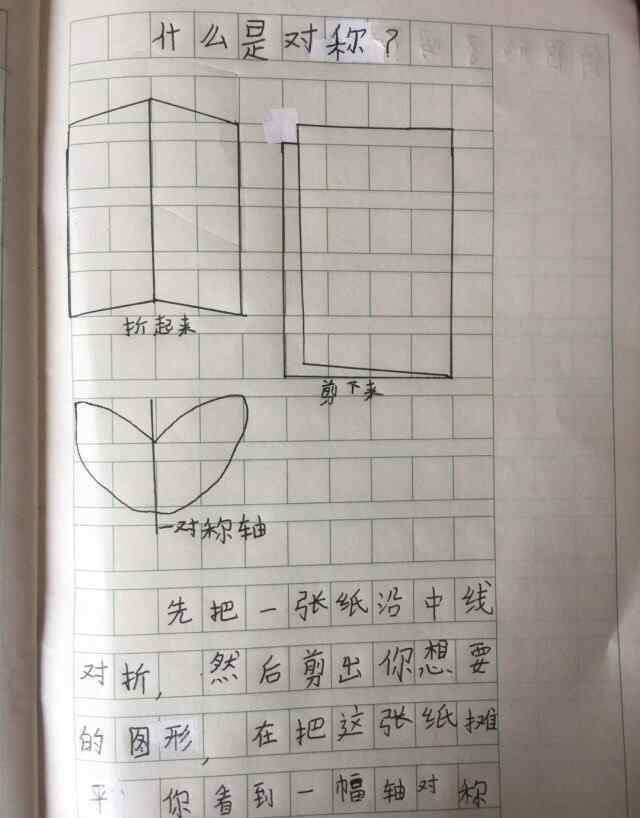 什么是对称?
折起来
剪下来
对称轴
先把一张纸沿中线
对折,然后剪出你想要
的图形,在把这张纸摊
平 你看到一幅轴对称